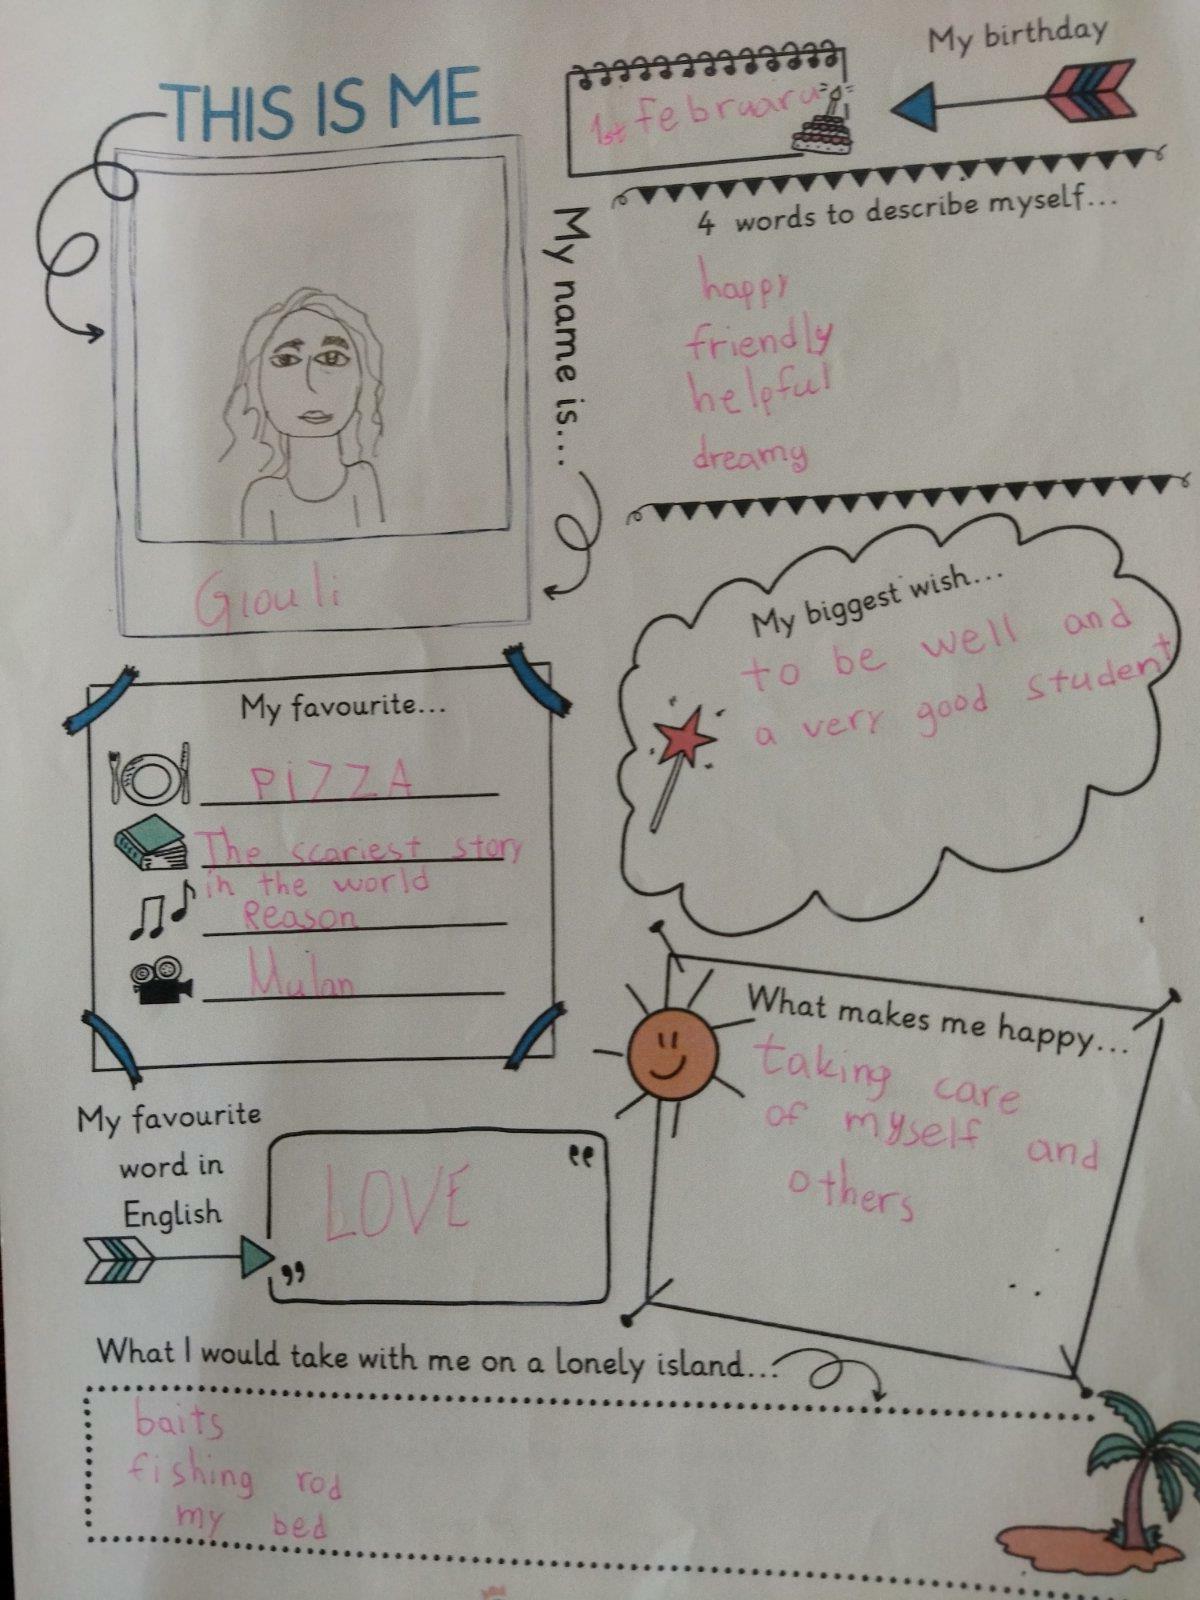 THIS IS ME
My birthday
1st february
My name is...
Giouli
4 words to describe myself...
happy
friendly
helpful
dreamy
My biggest wish...
to be well and
a very good student
My favourite...
PiZZA
The scariest story
in the world
Reason
Mulan
What makes me happy...
taking care
of myself and
others
My favourite
word in
English
LOVE
What I would take with me on a lonely island...
baits
fishing rod
my bed